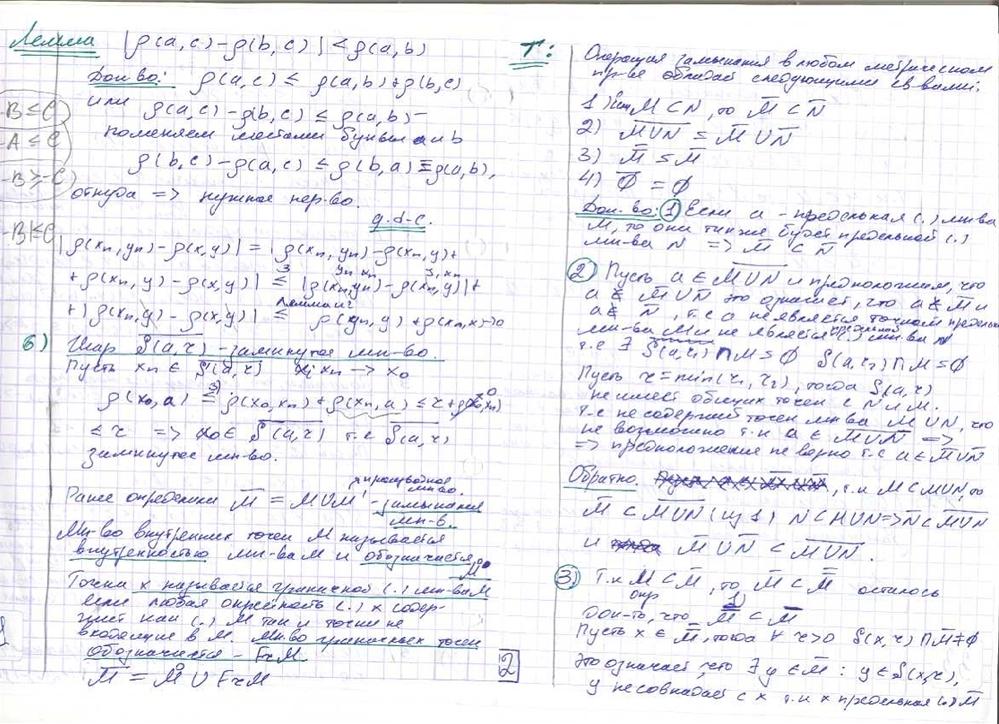 Лемма |ρ(a,c)-ρ(b,c)| ≤ ρ(a,b)
Док-во: ρ(a,c) ≤ ρ(a,b)+ρ(b,c)
или ρ(a,c)-ρ(b,c) ≤ ρ(a,b) –
поменяем местами буквы a и b
ρ(b,c)-ρ(a,c) ≤ ρ(b,a) ≡ ρ(a,b),
откуда => нужное нер-во.
g.d.c.
-B ≤ C
A ≤ C
-B ≥ -C
|ρ(xₙ,yₙ)-ρ(x,y)| = |ρ(xₙ,yₙ)-ρ(xₙ,y)+
+ρ(xₙ,y)-ρ(x,y)| ≤ |ρ(xₙ,yₙ)-ρ(xₙ,y)|+
+|ρ(xₙ,y)-ρ(x,y)| ≤ ρ(yₙ,y)+ρ(xₙ,x)→0
6) Шар S̅(a,r) – замкнутое мн-во.
Пусть xₙ ∈ S̅(a,r) xₙ → x₀
ρ(x₀,a) ≤ ρ(x₀,xₙ)+ρ(xₙ,a) ≤ r+ρ(x₀,xₙ)
≤ r => x₀ ∈ S̅(a,r) т.е S̅(a,r)
замкнутое мн-во.
Ранее определили M̅ = M∪M' – замыкание мн-в.
Мн-во внутренних точек M называется
внутренностью мн-ва M и обозначается M̊
Точка x называется граничной (.) мн-ва M
если любая окрестность (.) x содер-
жит как (.) M так и точки не
входящие в M. Мн-во граничных точек
обозначается – FrM
M̅ = M̊ ∪ FrM
2
T: Операция замыкания в любом метрическом
пр-ве обладает следующими св-вами:
1) M ⊂ N, то M̅ ⊂ N̅
2) M̅∪̅N̅ = M̅ ∪ N̅
3) M̿ = M̅
4) ∅̅ = ∅
Док-во: 1) Если a – предельная (.) мн-ва
M, то она также будет предельной (.)
мн-ва N => M̅ ⊂ N̅
2) Пусть a ∈ M̅∪̅N̅ и предположим, что
a ∉ M̅∪N̅ это означает, что a ∉ M̅ и
a ∉ N̅, т.е a не является точкой предельной
мн-ва M и не является предельной (.) мн-ва N
т.е ∃ S(a,r₁)∩M=∅ S(a,r₂)∩M=∅
Пусть r = min(r₁,r₂), тогда S(a,r)
не имеет общих точек с N и M.
т.е не содержит точек мн-ва M∪N, что
невозможно т.к a ∈ M̅∪̅N̅ =>
=> предположение не верно т.е a ∈ M̅∪N̅
Обратно. т.к M⊂M∪N, то
M̅ ⊂ M̅∪̅N̅ (из 1) N⊂M∪N => N̅⊂M̅∪̅N̅
и M̅∪N̅ ⊂ M̅∪̅N̅.
3) Т.к M⊂M̅, то M̅ ⊂ M̿ осталось
док-ть, что M̿ ⊂ M̅
Пусть x ∈ M̿, тогда ∀ r>0 S(x,r)∩M̅≠∅
Это означает, что ∃ y ∈ M̅ : y ∈ S(x,r),
y не совпадает с x т.к x предельная (.) M̅